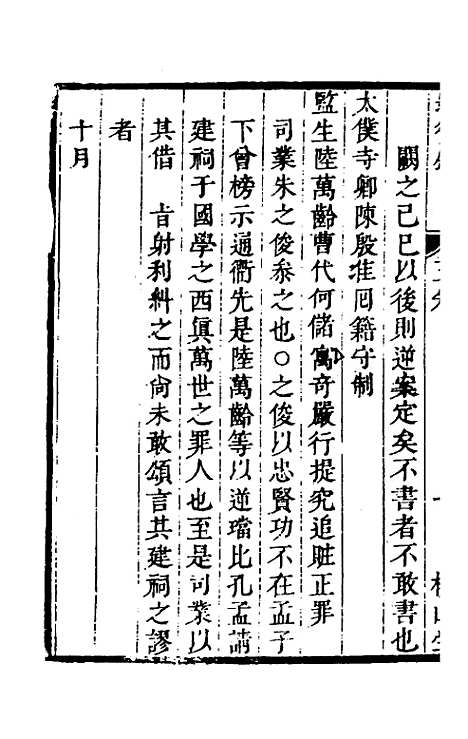 闕之己巳以後則逆案定矣不書者不敢書也
太僕寺卿陳殷准囘籍守制
監生陸萬齡曹代何儲富奇嚴行提究追贓正罪
司業朱之俊叅之也○之俊以忠賢功不在孟子
下曾榜示通衢先是陸萬齡等以逆璫比孔孟請
建祠于國學之西眞萬世之罪人也至是司業以
其借 旨射利糾之而尙未敢頌言其建祠之謬
者
十月